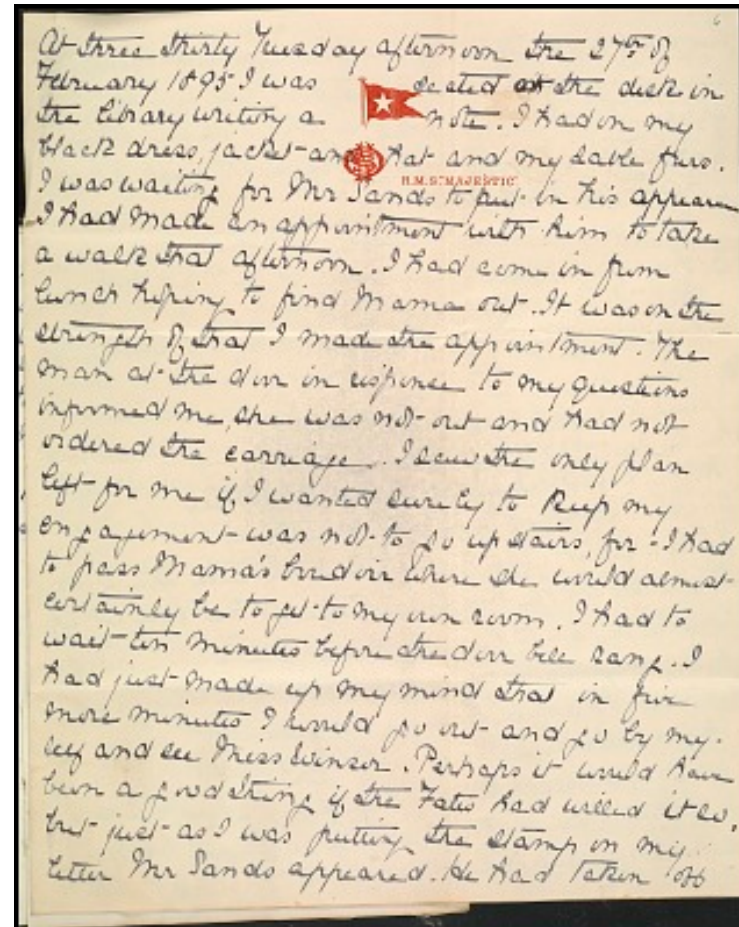 6
At three thirty Tuesday afternoon the 27th of
February 1895 I was seated at the desk in
the library writing a note. I had on my
black dress, jacket and hat and my sable furs.
R.M.S. "MAJESTIC"
I was waiting for Mr Sands to put in his appearan
I had made an appointment with him to take
a walk that afternoon. I had come in from
lunch hoping to find Mama out. It was on the
strength of that I made the appointment. The
man at the door in response to my questions
informed me, she was not out and had not
ordered the carriage. I saw the only plan
left for me if I wanted surely to keep my
engagement was not to go upstairs, for I had
to pass Mama's boudoir where she would almost
certainly be to get to my own room. I had to
wait ten minutes before the door bell rang. I
had just made up my mind that in five
more minutes I would go out and go by my-
self and see Miss Winsor. Perhaps it would have
been a good thing if the Fates had willed it so,
but just as I was putting the stamp on my
letter Mr Sands appeared. He had taken off